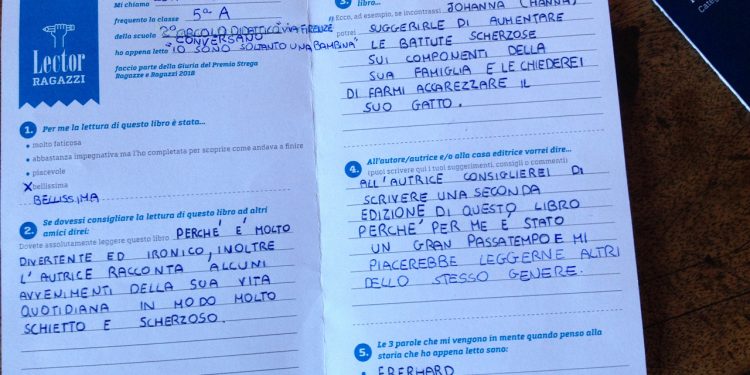 Mi chiamo
frequento la classe 5ª A
della scuola 2° CIRCOLO DIDATTICO "VIA FIRENZE"
CONVERSANO
ho appena letto "IO SONO SOLTANTO UNA BAMBINA"
faccio parte della Giuria del Premio Strega
Ragazze e Ragazzi 2018
Lector
RAGAZZI
1. Per me la lettura di questo libro è stata...
• molto faticosa
• abbastanza impegnativa ma l'ho completata per scoprire come andava a finire
• piacevole
X bellissima
BELLISSIMA
2. Se dovessi consigliare la lettura di questo libro ad altri
amici direi:
Dovete assolutamente leggere questo libro PERCHE' E' MOLTO
DIVERTENTE ED IRONICO, INOLTRE
L'AUTRICE RACCONTA ALCUNI
AVVENIMENTI DELLA SUA VITA
QUOTIDIANA IN MODO MOLTO
SCHIETTO E SCHERZOSO.
libro...
(Ecco, ad esempio, se incontrassi JOHANNA (HANNA),
potrei
SUGGERIRLE DI AUMENTARE
LE BATTUTE SCHERZOSE
SUI COMPONENTI DELLA
SUA FAMIGLIA E LE CHIEDEREI
DI FARMI ACCAREZZARE IL
SUO GATTO.
4. All'autore/autrice e/o alla casa editrice vorrei dire...
(puoi scrivere qui i tuoi suggerimenti, consigli o commenti)
ALL'AUTRICE CONSIGLIEREI DI
SCRIVERE UNA SECONDA
EDIZIONE DI QUESTO LIBRO
PERCHE' PER ME È STATO
UN GRAN PASSATEMPO E MI
PIACEREBBE LEGGERNE ALTRI
DELLO STESSO GENERE.
5. Le 3 parole che mi vengono in mente quando penso alla
storia che ho appena letto sono:
• EBERHARD